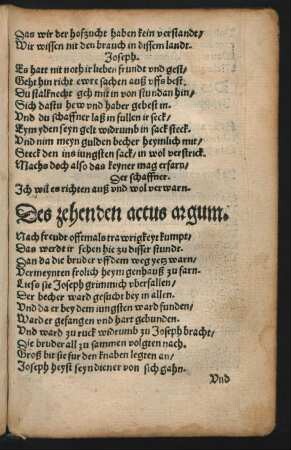 Das wir der hofzucht haben kein verstandt/
Wir wissen nit den brauch in dessem landt.
Joseph.
Es hatt nit noth ir lieben frundt vnd gest/
Geht hin richt ewre sachen auß vffs best.
Du stalknecht geh mit in von stundan hin/
Sich dastu hew vnd haber gebest in.
Vnd du schaffner laß in fullen ir seck/
Eym yden seyn gelt widrumb in sack steck.
Vnd nim meyn gulden becher heymlich mit/
Steck den ins iungsten sack/ in wol verstrick.
Machs doch also das keyner mag erfarn/
Der schaffner.
Ich wil es richten auß vnd wol verwarn.
Des zehenden actus argum.
Nach freudt offtmals trawrigkeyt kumpt/
Das werdt ir sehen hie zu disser stundt.
Dan da die bruder vff dem weg yetz warn/
Vermeynten frolich heym genhauß zu farn.
Lies sie Joseph grimmich vberfallen/
Der becher ward gesucht bey in allen.
Vnd da er bey dem iungsten ward funden/
Ward er gefangen vnd hart gebunden.
Vnd ward zu ruck widrumb zu Joseph bracht/
Die bruder all zu sammen volgten nach.
Groß bit sie fur den knaben legten an/
Joseph heyst seyn diener von sich gahn.
Vnd